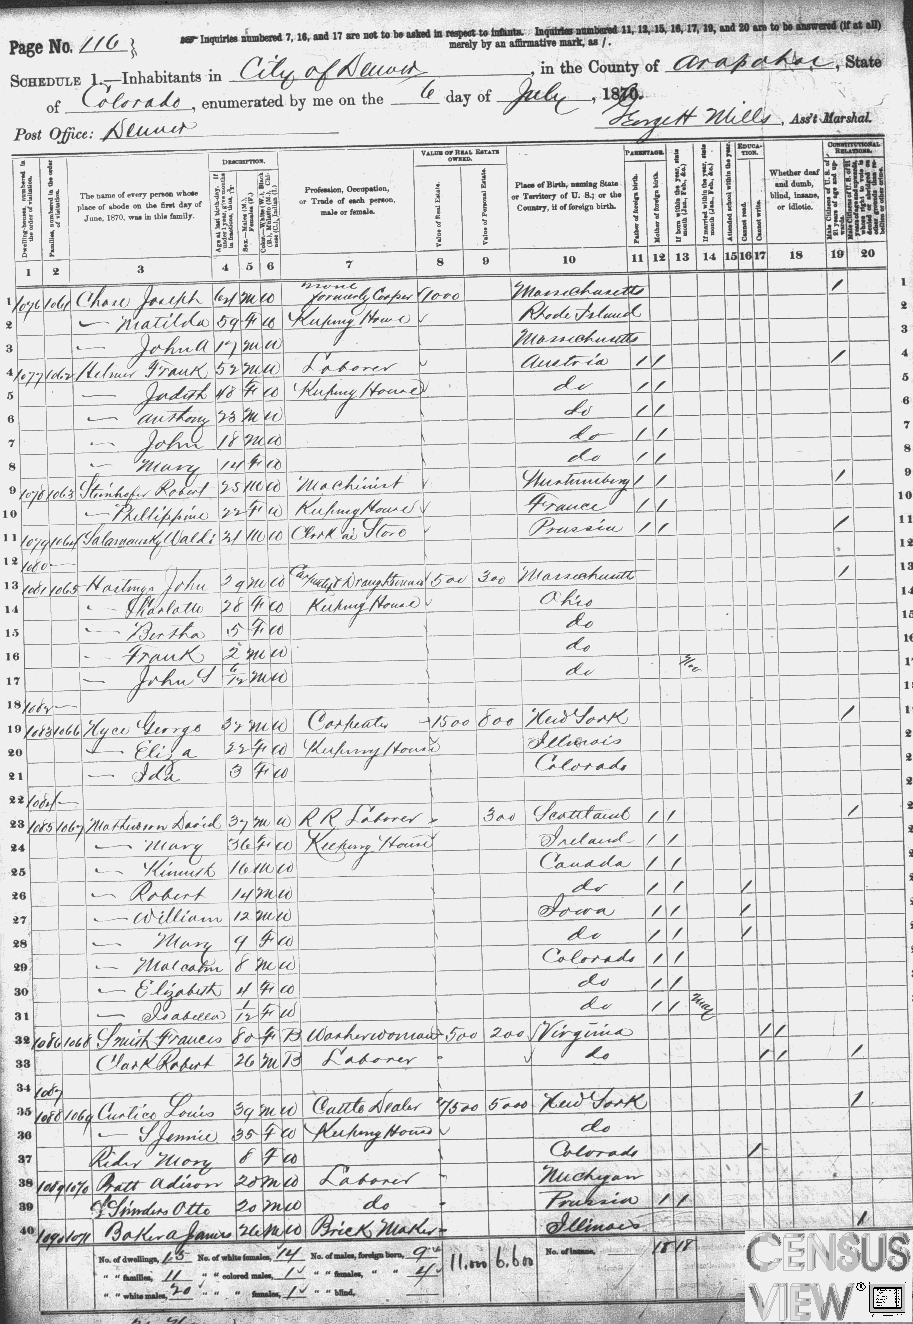 Page No. 116
Inquiries numbered 7, 16, and 17 are not to be asked in respect to infants. Inquiries numbered 11, 12, 15, 16, 17, 19, and 20 are to be answered (if at all)
merely by an affirmative mark, as /.
SCHEDULE 1.—Inhabitants in City of Denver, in the County of Arapahoe, State
of Colorado, enumerated by me on the 6 day of July, 1870.
Post Office: Denver George H Mills, Ass't Marshal.
DESCRIPTION. VALUE OF REAL ESTATE OWNED. PARENTAGE. EDUCATION. CONSTITUTIONAL RELATIONS.
Dwelling-houses, numbered in the order of visitation.
Families, numbered in the order of visitation.
The name of every person whose place of abode on the first day of June, 1870, was in this family.
Profession, Occupation, or Trade of each person, male or female.
Value of Real Estate.
Value of Personal Estate.
Place of Birth, naming State or Territory of U. S.; or the Country, if of foreign birth.
Father of foreign birth.
Mother of foreign birth.
Attended school within the year.
Cannot read.
Cannot write.
Whether deaf and dumb, blind, insane, or idiotic.
1 2 3 4 5 6 7 8 9 10 11 12 13 14 15 16 17 18 19 20
1 1076 1061 Chase Joseph 64 M W none formerly Cooper 1000 Massachusetts /
2 — Matilda 59 F W Keeping House Rhode Island
3 — John A 17 M W Massachusetts
4 1077 1062 Helmer Frank 52 M W Laborer Austria / / /
5 — Judith 48 F W Keeping House do / /
6 — Anthony 23 M W do / /
7 — John 18 M W do / /
8 — Mary 14 F W do / /
9 1078 1063 Robert 25 M W Machinist Wurtemberg / / /
10 — Phillippine 22 F W Keeping House France / /
11 1079 1064 21 M W Clerk in Store Prussia / / /
12 1080 —
13 1081 1065 Hastings John 29 M W Draughtsman 1500 300 Massachusetts /
14 — Charlotte 28 F W Keeping House Ohio
15 — Bertha 5 F W do
16 — Frank 2 M W do
17 — John S 6/12 M W do
18 1082 —
19 1083 1066 Hyce George 32 M W Carpenter 1500 800 New York /
20 — Eliza 22 F W Keeping House Illinois
21 — Ida 3 F W Colorado
22 1084 —
23 1085 1067 Mathewson David 37 M W R R Laborer 300 Scottland / / /
24 — Mary 36 F W Keeping House Ireland / /
25 — 16 M W Canada / /
26 — Robert 14 M W do / / /
27 — William 12 M W Iowa / / /
28 — Mary 9 F W do / / /
29 — Malcolm 8 M W Colorado / /
30 — Elizabeth 4 F W do / /
31 — Isabella 1/12 F W do / / May
32 1086 1068 Smith Frances 80 F B Washerwoman 500 200 Virginia / /
33 Clark Robert 26 M B Laborer do / / /
34 1087
35 1088 1069 Louis 39 M W Cattle Dealer 7500 5000 New York /
36 — S Jennie 35 F W Keeping House do
37 Rider Mary 8 F W Colorado /
38 1089 1070 Pratt Adison 20 M W Laborer Michigan
39 Otto 20 M W do Prussia / /
40 1090 1071 Baker A James 26 M W Brick Maker Illinois /
No. of dwellings, 15 No. of white females, 14 No. of males, foreign born, 9 11,000 6,600 No. of insane, 18 18
" " families, 11 " " colored males, 1 " " females, " " 4
" " white males, 20 " " " females, 1 " " blind,
CENSUS
VIEW